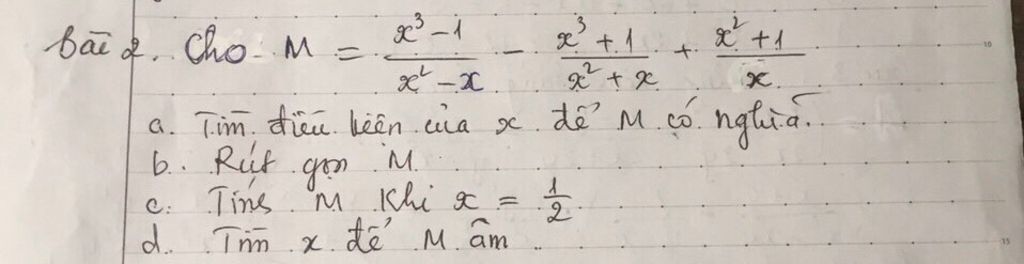 Bài 2. Cho M = (x³ - 1)/(x² - x) - (x³ + 1)/(x² + x) + (x² + 1)/x
a. Tìm điều kiện của x để M có nghĩa.
b. Rút gọn M.
c. Tính M khi x = 1/2
d. Tìm x để M âm